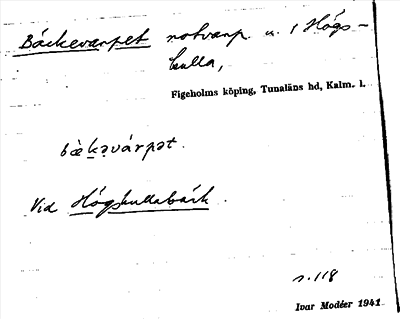 Bäckevarpet notvarp u. 1 Högs-
kulla,
Figeholms köping, Tunaläns hd, Kalm. l.
bæ̀kəvárpət.
Vid Högskullabäck.
s. 118
Ivar Modéer 1941